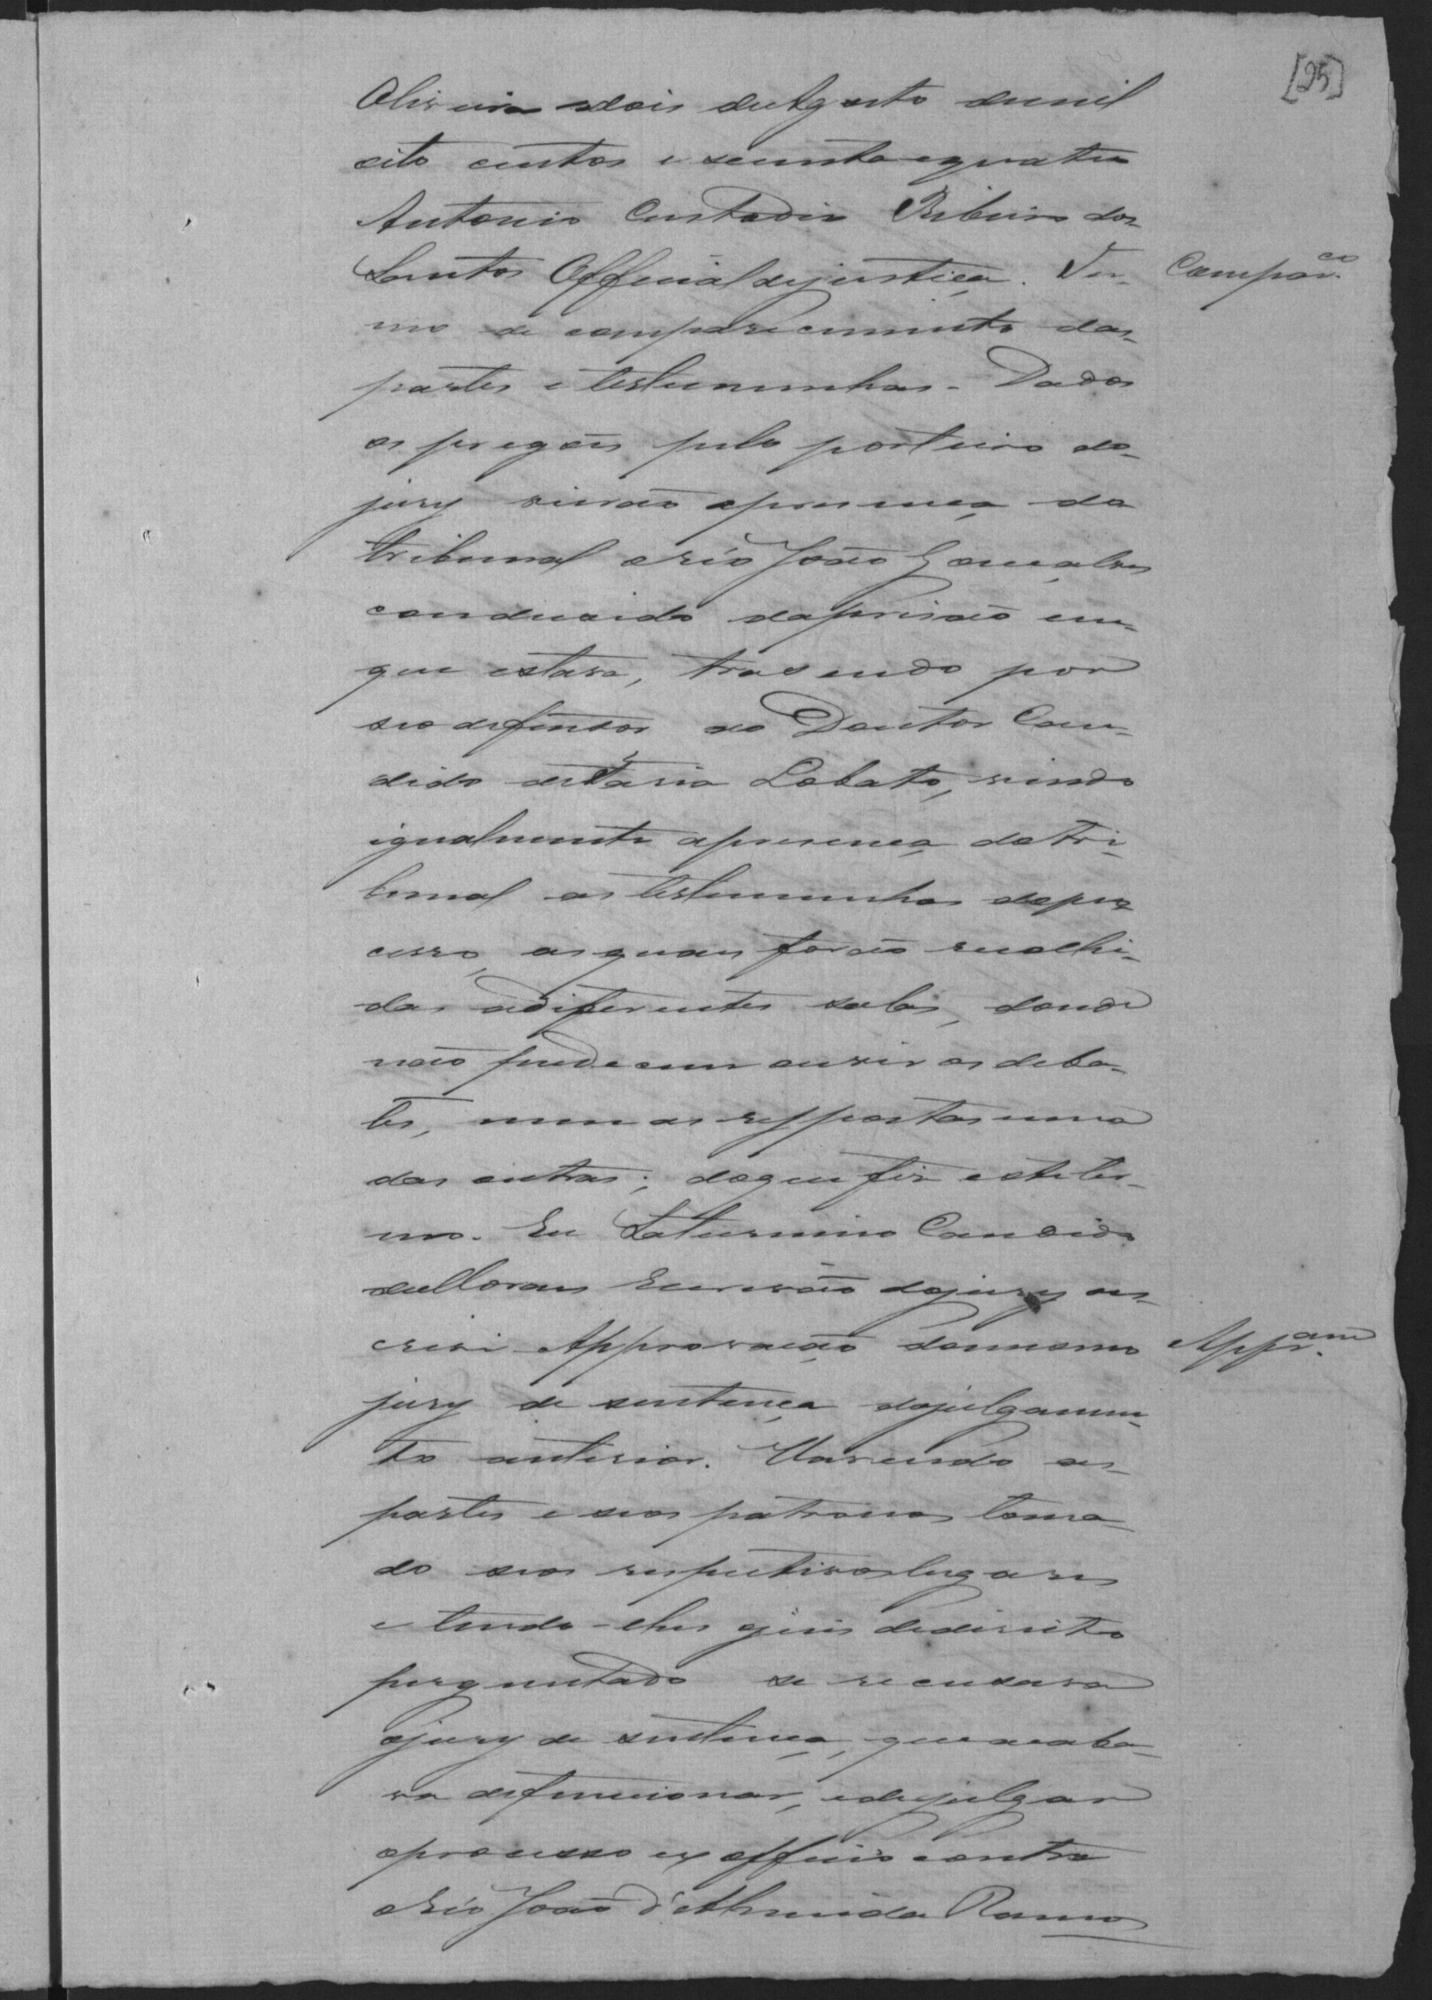 [25]
Oliveira dois de Agosto de mil
oito centos e secenta e quatro
Antonio Custodio Ribeiro dos
Santos Official de justiça. Ter- Compar.co
mo de comparecimento das
partes e testemunhas. Dados
os pregões pelo porteiro do
jury vierão a presença do
tribunal o réo João Gonçalves
conduzido da prisão em
que estava, trasendo por
seo defensor ao Doutor Can-
dido de Faria Lobato, vindo
igualmente a presença do tri-
bunal as testemunhas do pro
cesso, as quaes forão recolhi-
das a differentes salas, donde
não pudecem ouvir os deba-
tes, nem as respostas umas
das outras; do que fiz este ter-
mo. Eu Saturnino Candido
de Moraes Escrivão do jury es-
crevi. Approvação do mesmo App.am
jury de sentença do julgamen-
to anterior. Havendo as
partes e seos patronos toma-
do seos respectivos lugares
e tendo-lhes o juis de direito
perguntado se recusava
o jury de sentença, que acaba-
va de funcionar, e de julgar
o processo ex officio contra
o réo João d'Almeida Ramos